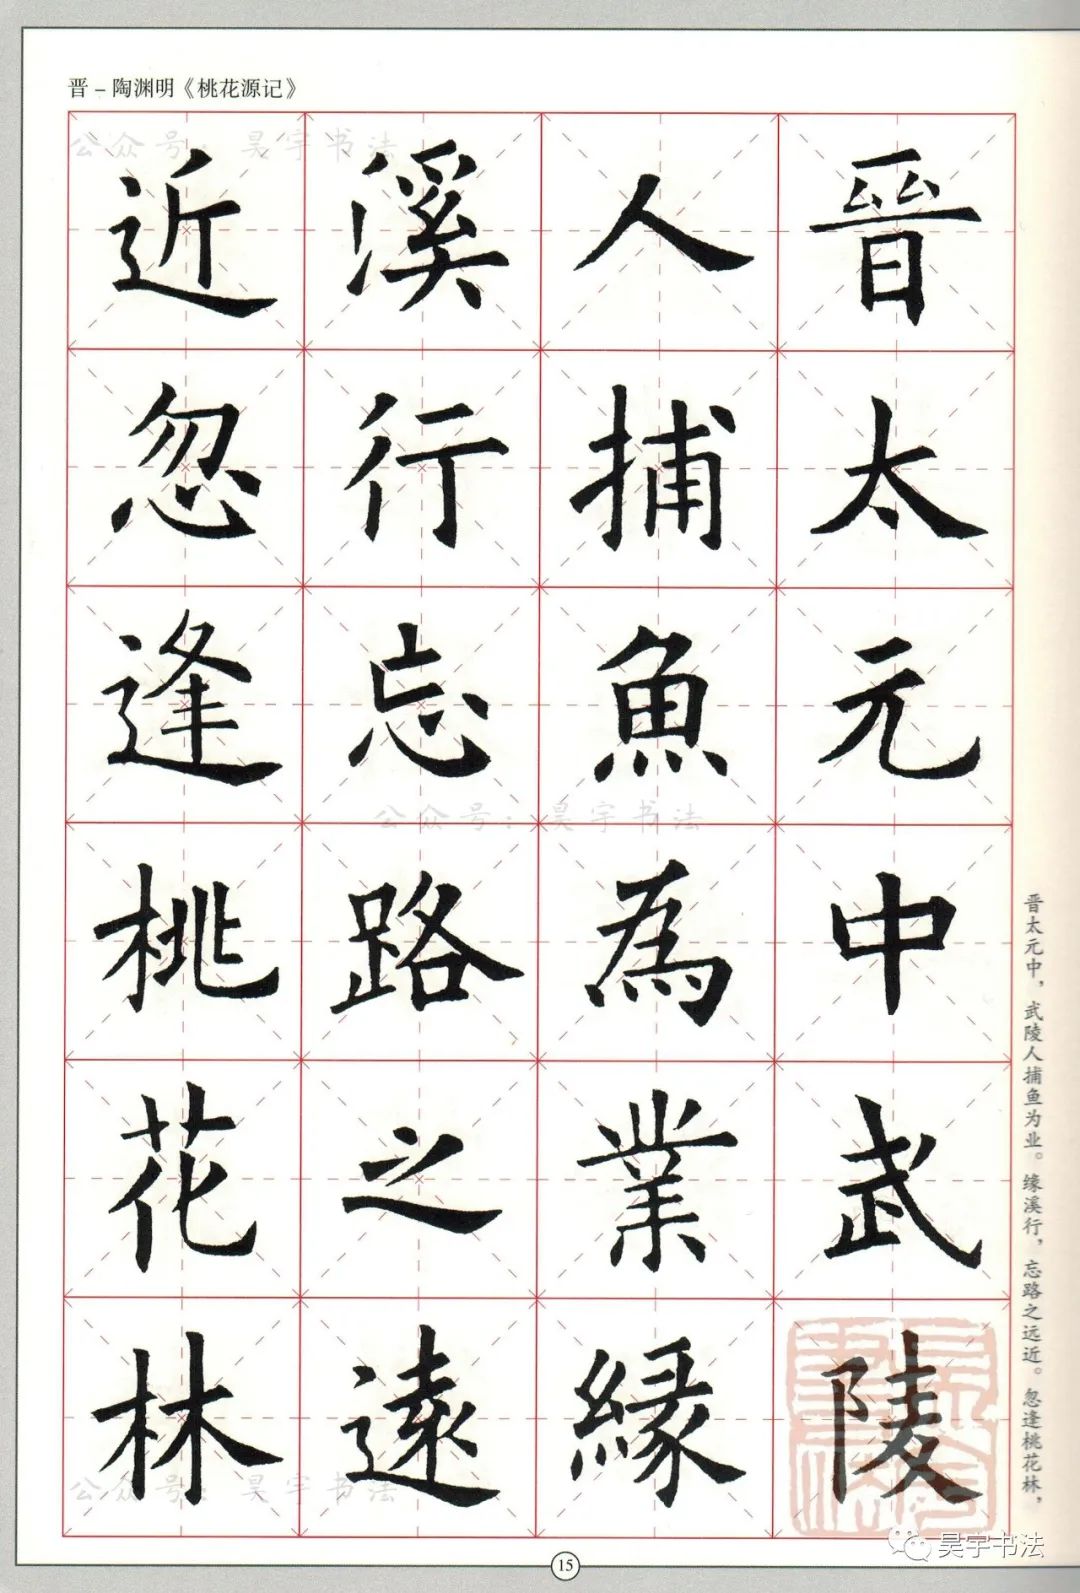 晋－陶渊明《桃花源记》
晉太元中武陵
人捕魚為業緣
溪行忘路之遠
近忽逢桃花林
晋太元中，武陵人捕鱼为业。缘溪行，忘路之远近。忽逢桃花林，
公众号：昊宇书法
公众号：昊宇书法
公众号：昊宇书法
昊宇书法
15